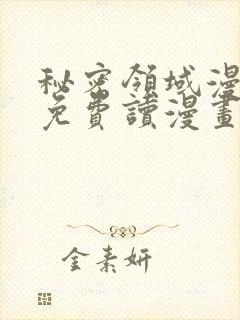 秘密領域漫
免費讀漫畫
金素妍